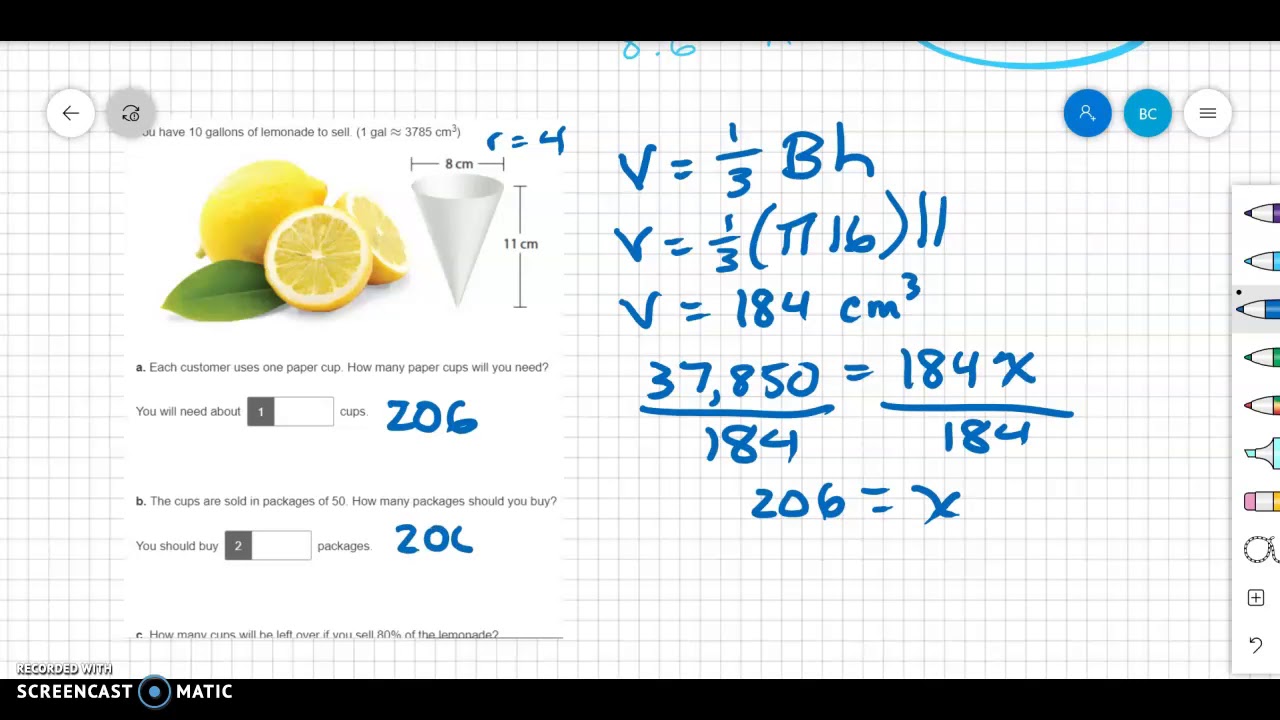 8.6
You have 10 gallons of lemonade to sell. (1 gal ≈ 3785 cm³)
r = 4
8 cm
11 cm
V = 1/3 Bh
V = 1/3 (π 16) 11
V = 184 cm³
37,850 = 184 x
184 184
206 = x
a. Each customer uses one paper cup. How many paper cups will you need?
You will need about 1 cups. 206
b. The cups are sold in packages of 50. How many packages should you buy?
You should buy 2 packages. 20
c. How many cups will be left over if you sell 80% of the lemonade?
BC
RECORDED WITH
SCREENCAST MATIC